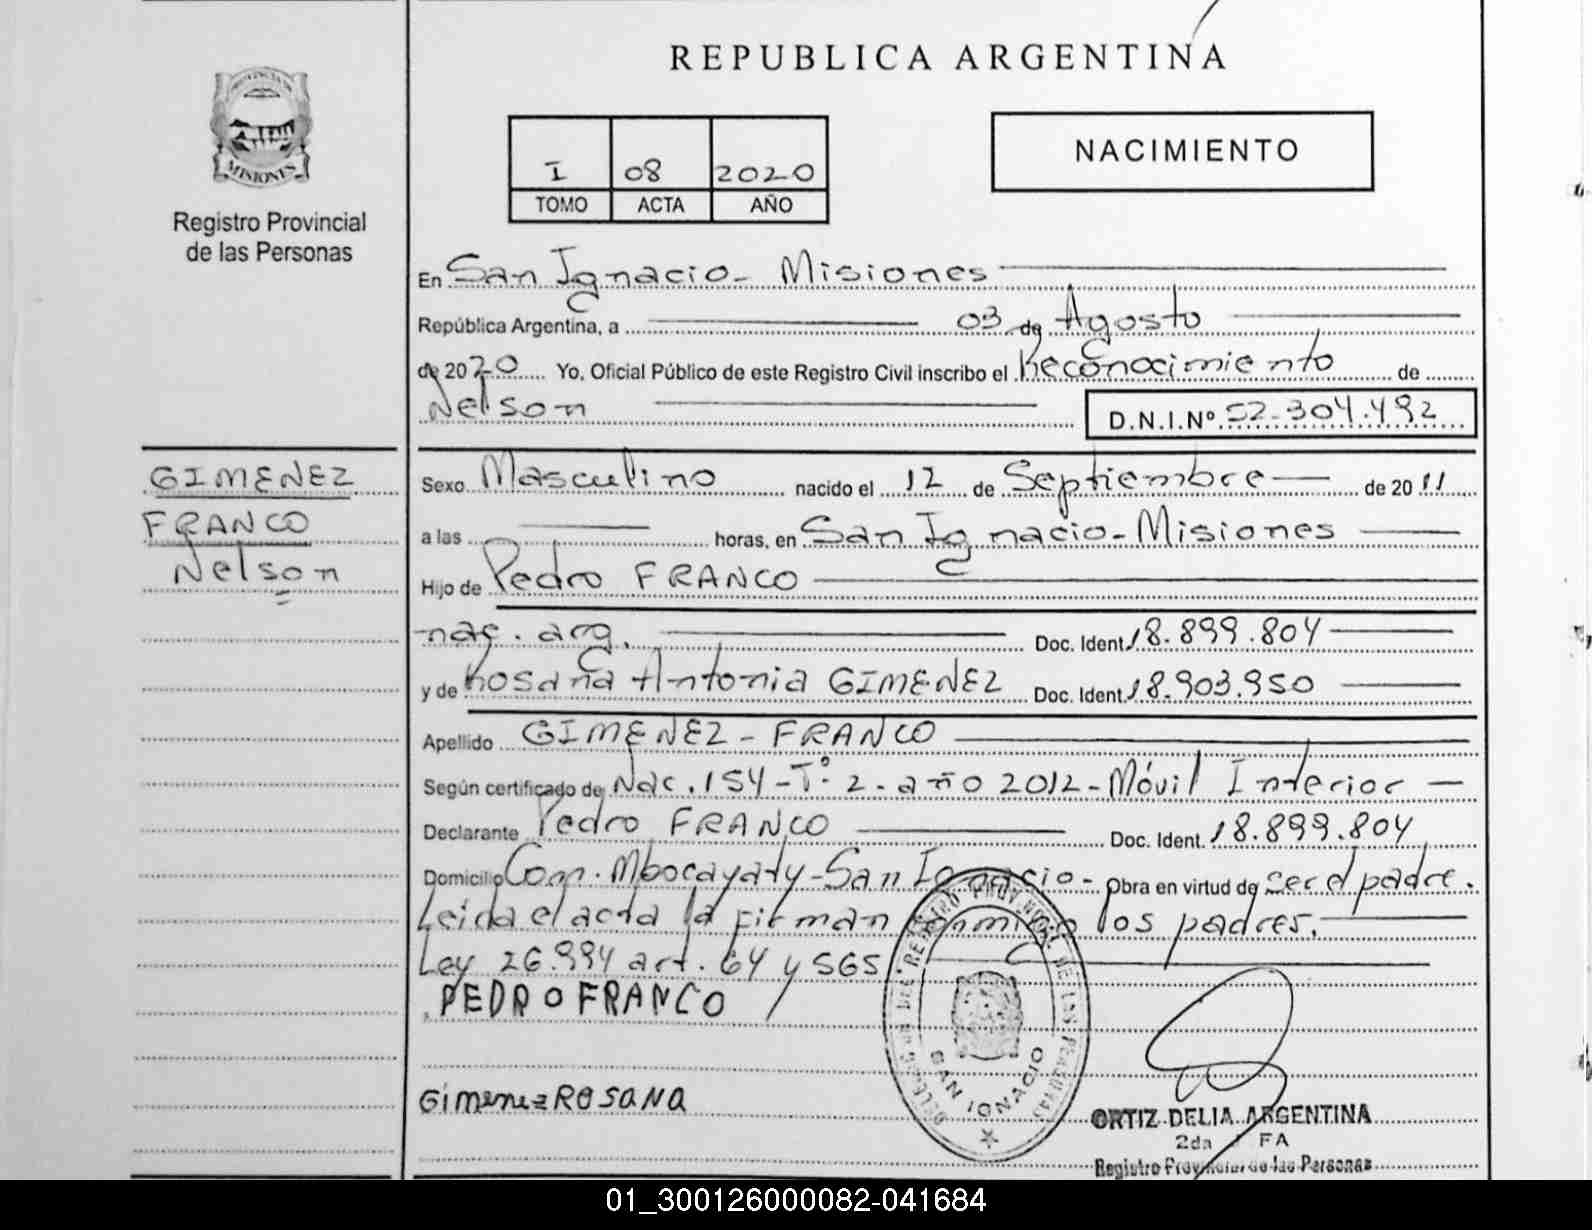 REPUBLICA ARGENTINA
PROVINCIA DE
MISIONES
Registro Provincial
de las Personas
I 08 2020
TOMO ACTA AÑO
NACIMIENTO
En San Ignacio - Misiones
República Argentina, a 03 de Agosto
de 2020 Yo, Oficial Público de este Registro Civil inscribo el Reconocimiento de
Nelson D.N.I.Nº 52.304.492
GIMENEZ
FRANCO
Nelson
Sexo Masculino nacido el 12 de Septiembre de 2011
a las horas, en San Ignacio - Misiones
Hijo de Pedro FRANCO
nac. arg. Doc. Ident. 18.899.804
y de Rosana Antonia GIMENEZ Doc. Ident. 18.903.950
Apellido GIMENEZ - FRANCO
Según certificado de Nac. 154 - Tº 2 - año 2012 - Móvil Interior
Declarante Pedro FRANCO Doc. Ident. 18.899.804
Domicilio Com. Mbocayaty - San Ignacio - Obra en virtud de ser el padre.
Leida el acta la firman conmigo los padres.
Ley 26.994 art. 64 y SGS
PEDRO FRANCO
Gimenez ROSANA
SAN IGNACIO
ORTIZ DELIA ARGENTINA
2da FA
Registro Provincial de las Personas
01_300126000082-041684